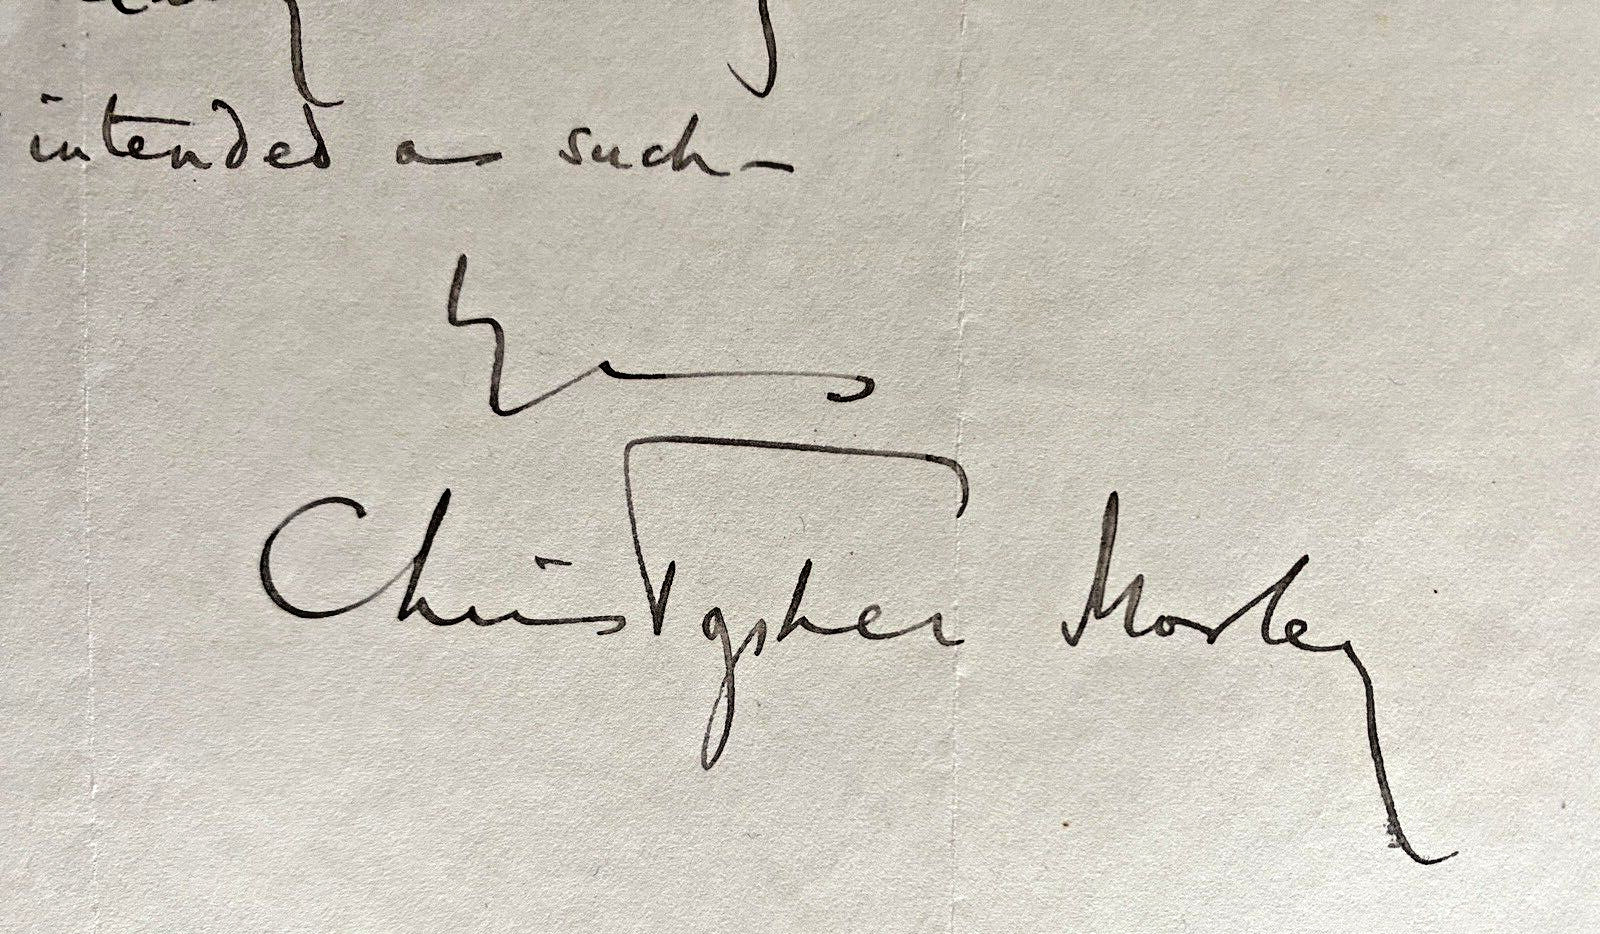 intended as such—
Yours
Christopher Morley